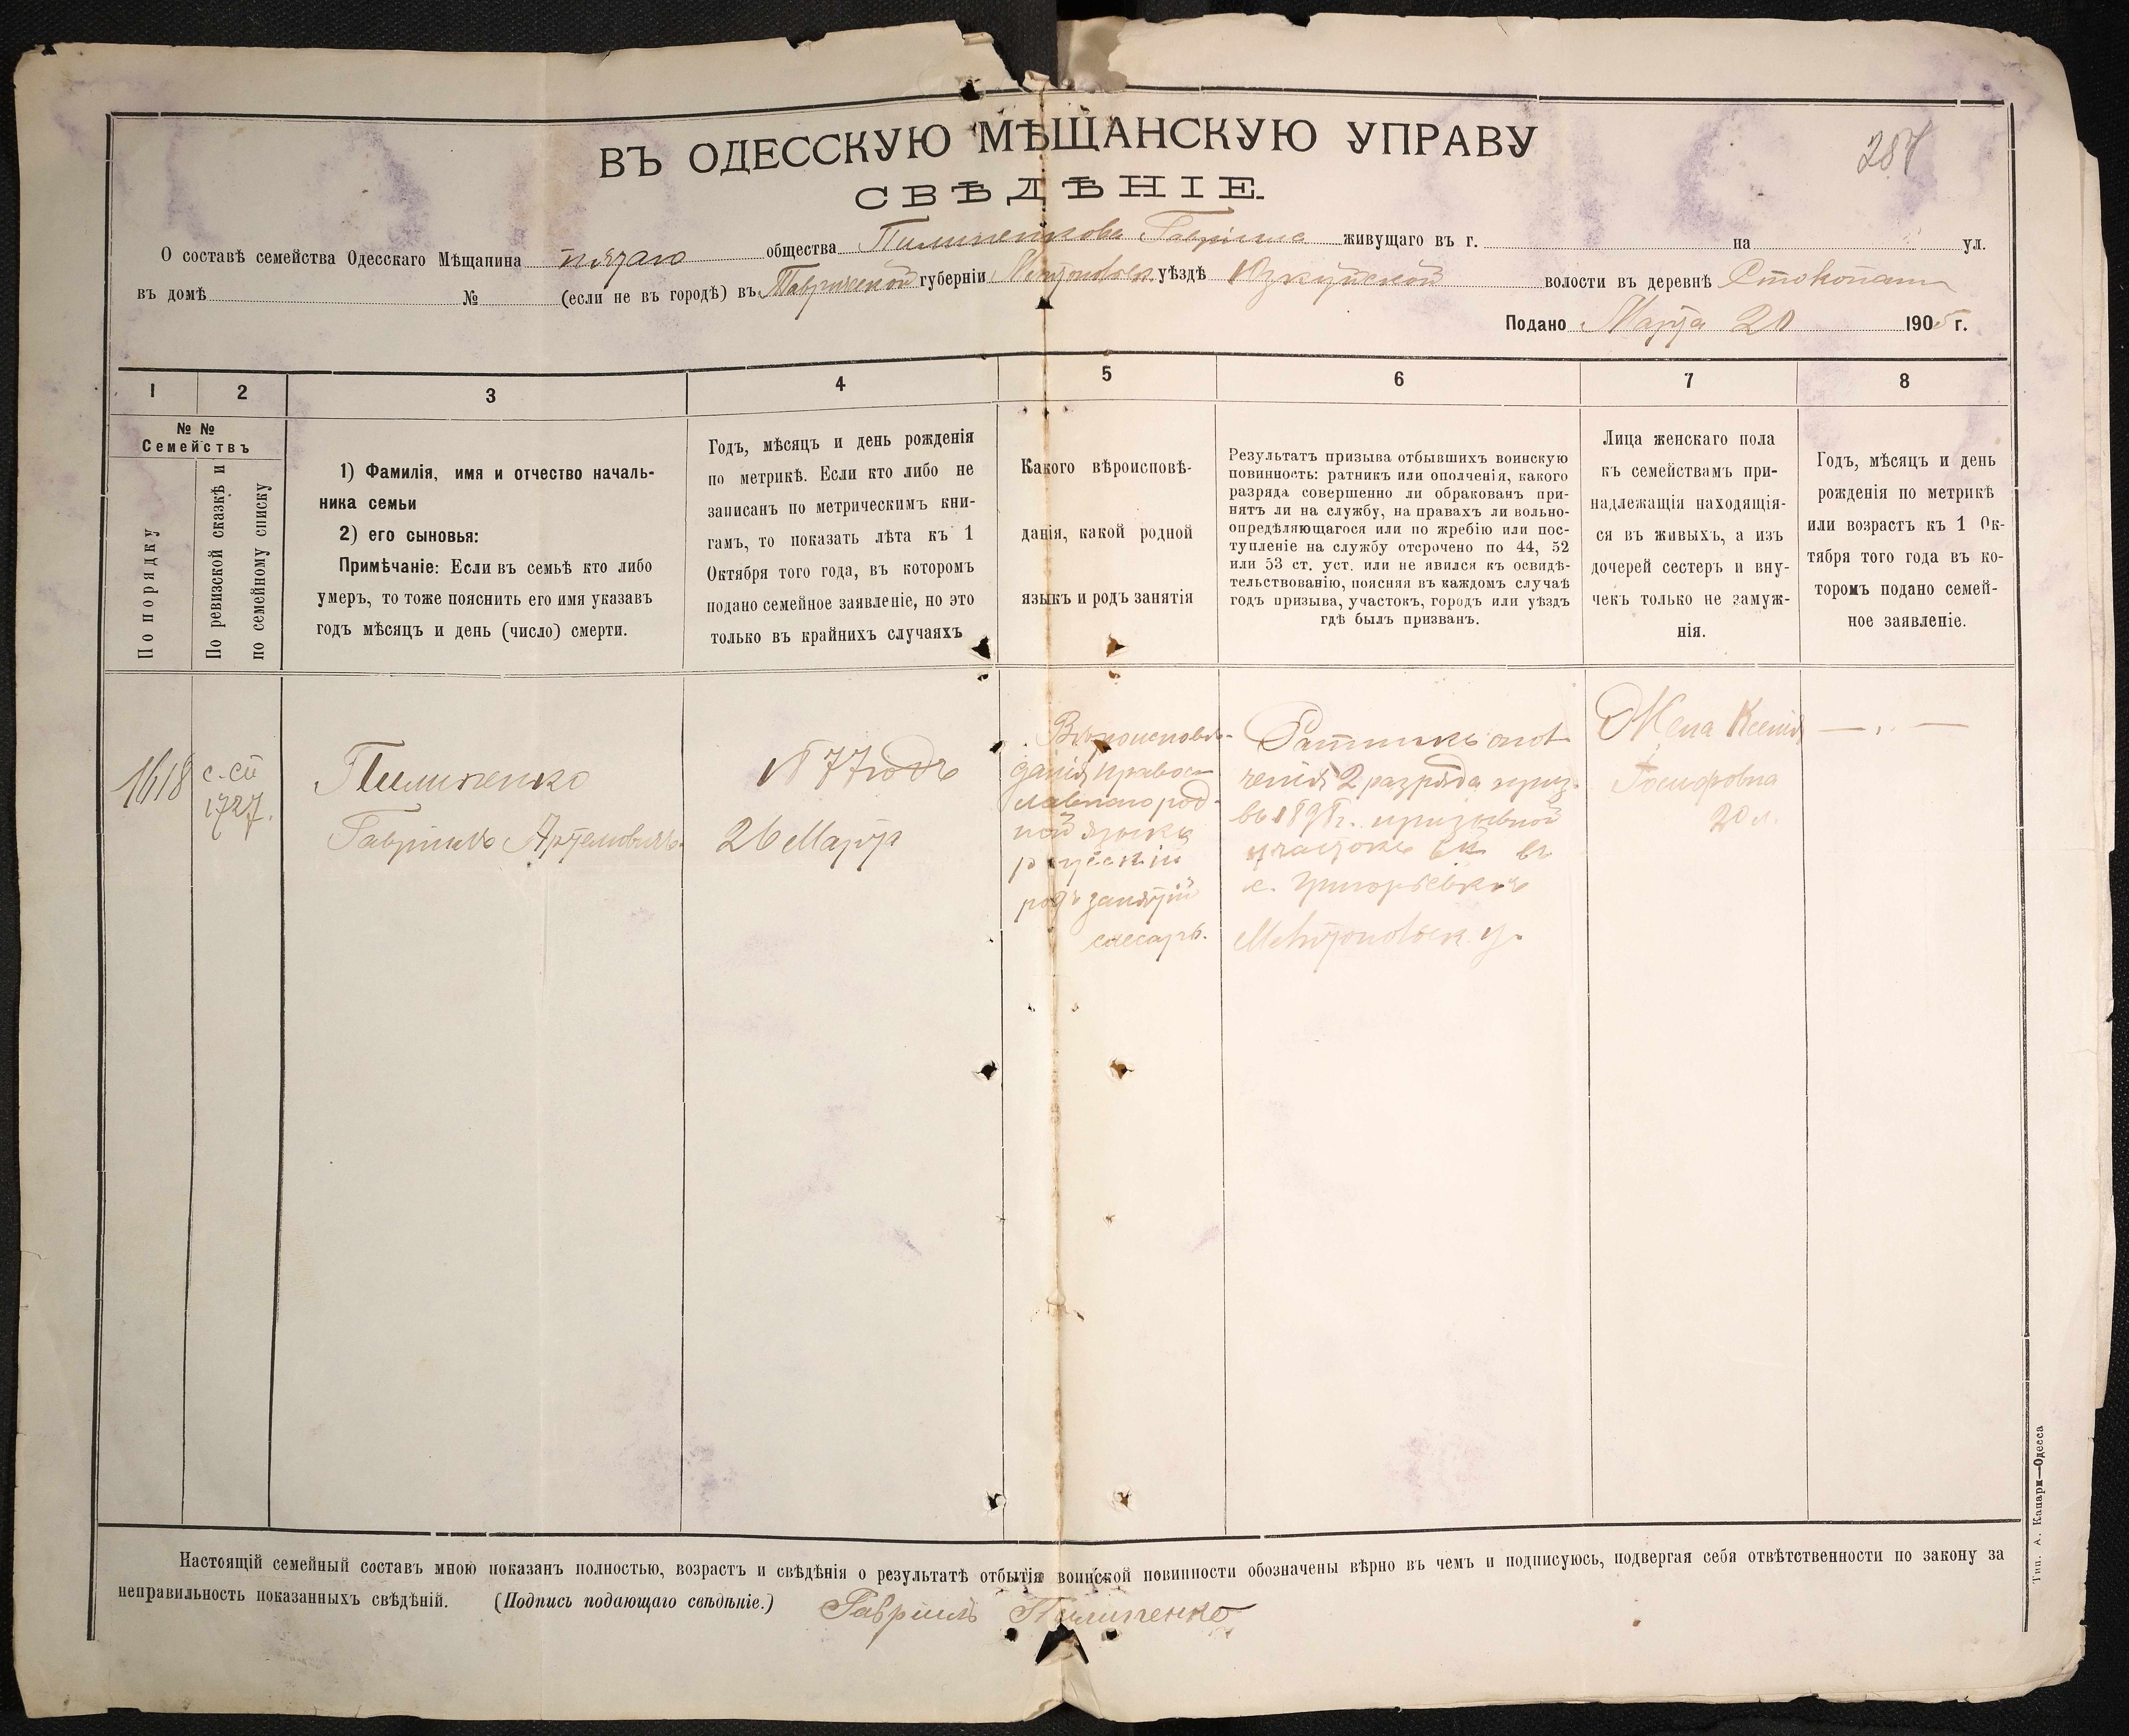 287
ВЪ ОДЕССКУЮ МѢЩАНСКУЮ УПРАВУ
СВѢДѢНІЕ.
О составѣ семейства Одесскаго Мѣщанина пятаго общества Пилипенкова Гавріила живущаго въ г. на ул.
въ домѣ № (если не въ городѣ) въ Таврической губерніи уѣздѣ волости въ деревнѣ
Подано Марта 20 1905 г.
1 2 3 4 5 6 7 8
№ №
Семействъ
По порядку
По ревизской сказкѣ и
по семейному списку
1) Фамилія, имя и отчество началь-
ника семьи
2) его сыновья:
Примѣчаніе: Если въ семьѣ кто либо
умеръ, то тоже пояснить его имя указавъ
годъ мѣсяцъ и день (число) смерти.
Годъ, мѣсяцъ и день рожденія
по метрикѣ. Если кто либо не
записанъ по метрическимъ кни-
гамъ, то показать лѣта къ 1
Октября того года, въ которомъ
подано семейное заявленіе, но это
только въ крайнихъ случаяхъ
Какого вѣроисповѣ-
данія, какой родной
языкъ и родъ занятія
Результатъ призыва отбывшихъ воинскую
повинность: ратникъ или ополченія, какого
разряда совершенно ли обракованъ при-
нятъ ли на службу, на правахъ ли вольно-
опредѣляющагося или по жребію или пос-
тупленіе на службу отсрочено по 44, 52
или 53 ст. уст. или не явился къ освидѣ-
тельствованію, поясняя въ каждомъ случаѣ
годъ призыва, участокъ, городъ или уѣздъ
гдѣ былъ призванъ.
Лица женскаго пола
къ семействамъ при-
надлежащія находящія-
ся въ живыхъ, а изъ
дочерей сестеръ и вну-
чекъ только не замуж-
нія.
Годъ, мѣсяцъ и день
рожденія по метрикѣ
или возрастъ къ 1 Ок-
тября того года въ ко-
торомъ подано семей-
ное заявленіе.
1618
1727.
Пилипенко
Гавріилъ Артемовичъ
1877 годъ
26 Марта
Вѣроисповѣ-
данія правос
лавнаго род-
ной языкъ
русскій
родъ занятій
слесарь.
Ратникъ опол
ченія 2 разряда приз.
въ 1898 г. призывной
участокъ въ
с. Григорьевкѣ
Мелитопольск у.
Жена Ксенія
Іосифовна
20 л.
Настоящій семейный составъ мною показанъ полностью, возрастъ и свѣдѣнія о результатѣ отбытія воинской повинности обозначены вѣрно въ чемъ и подписуюсь, подвергая себя отвѣтственности по закону за
неправильность показанныхъ свѣдѣній. (Подпись подающаго свѣдѣніе.) Гавріилъ Пилипенко
Тип. А. Капари—Одесса